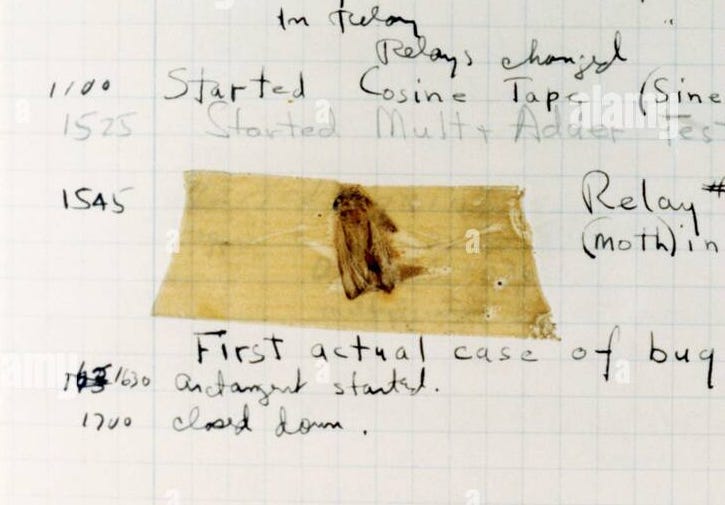 In Relay
Relays changed
1100 Started Cosine Tape (Sine
1525 Started Mult+ Adder Tes
1545 Relay #
(moth) in
First actual case of bug
1630 arctangent started.
1700 closed down.
alamy
a